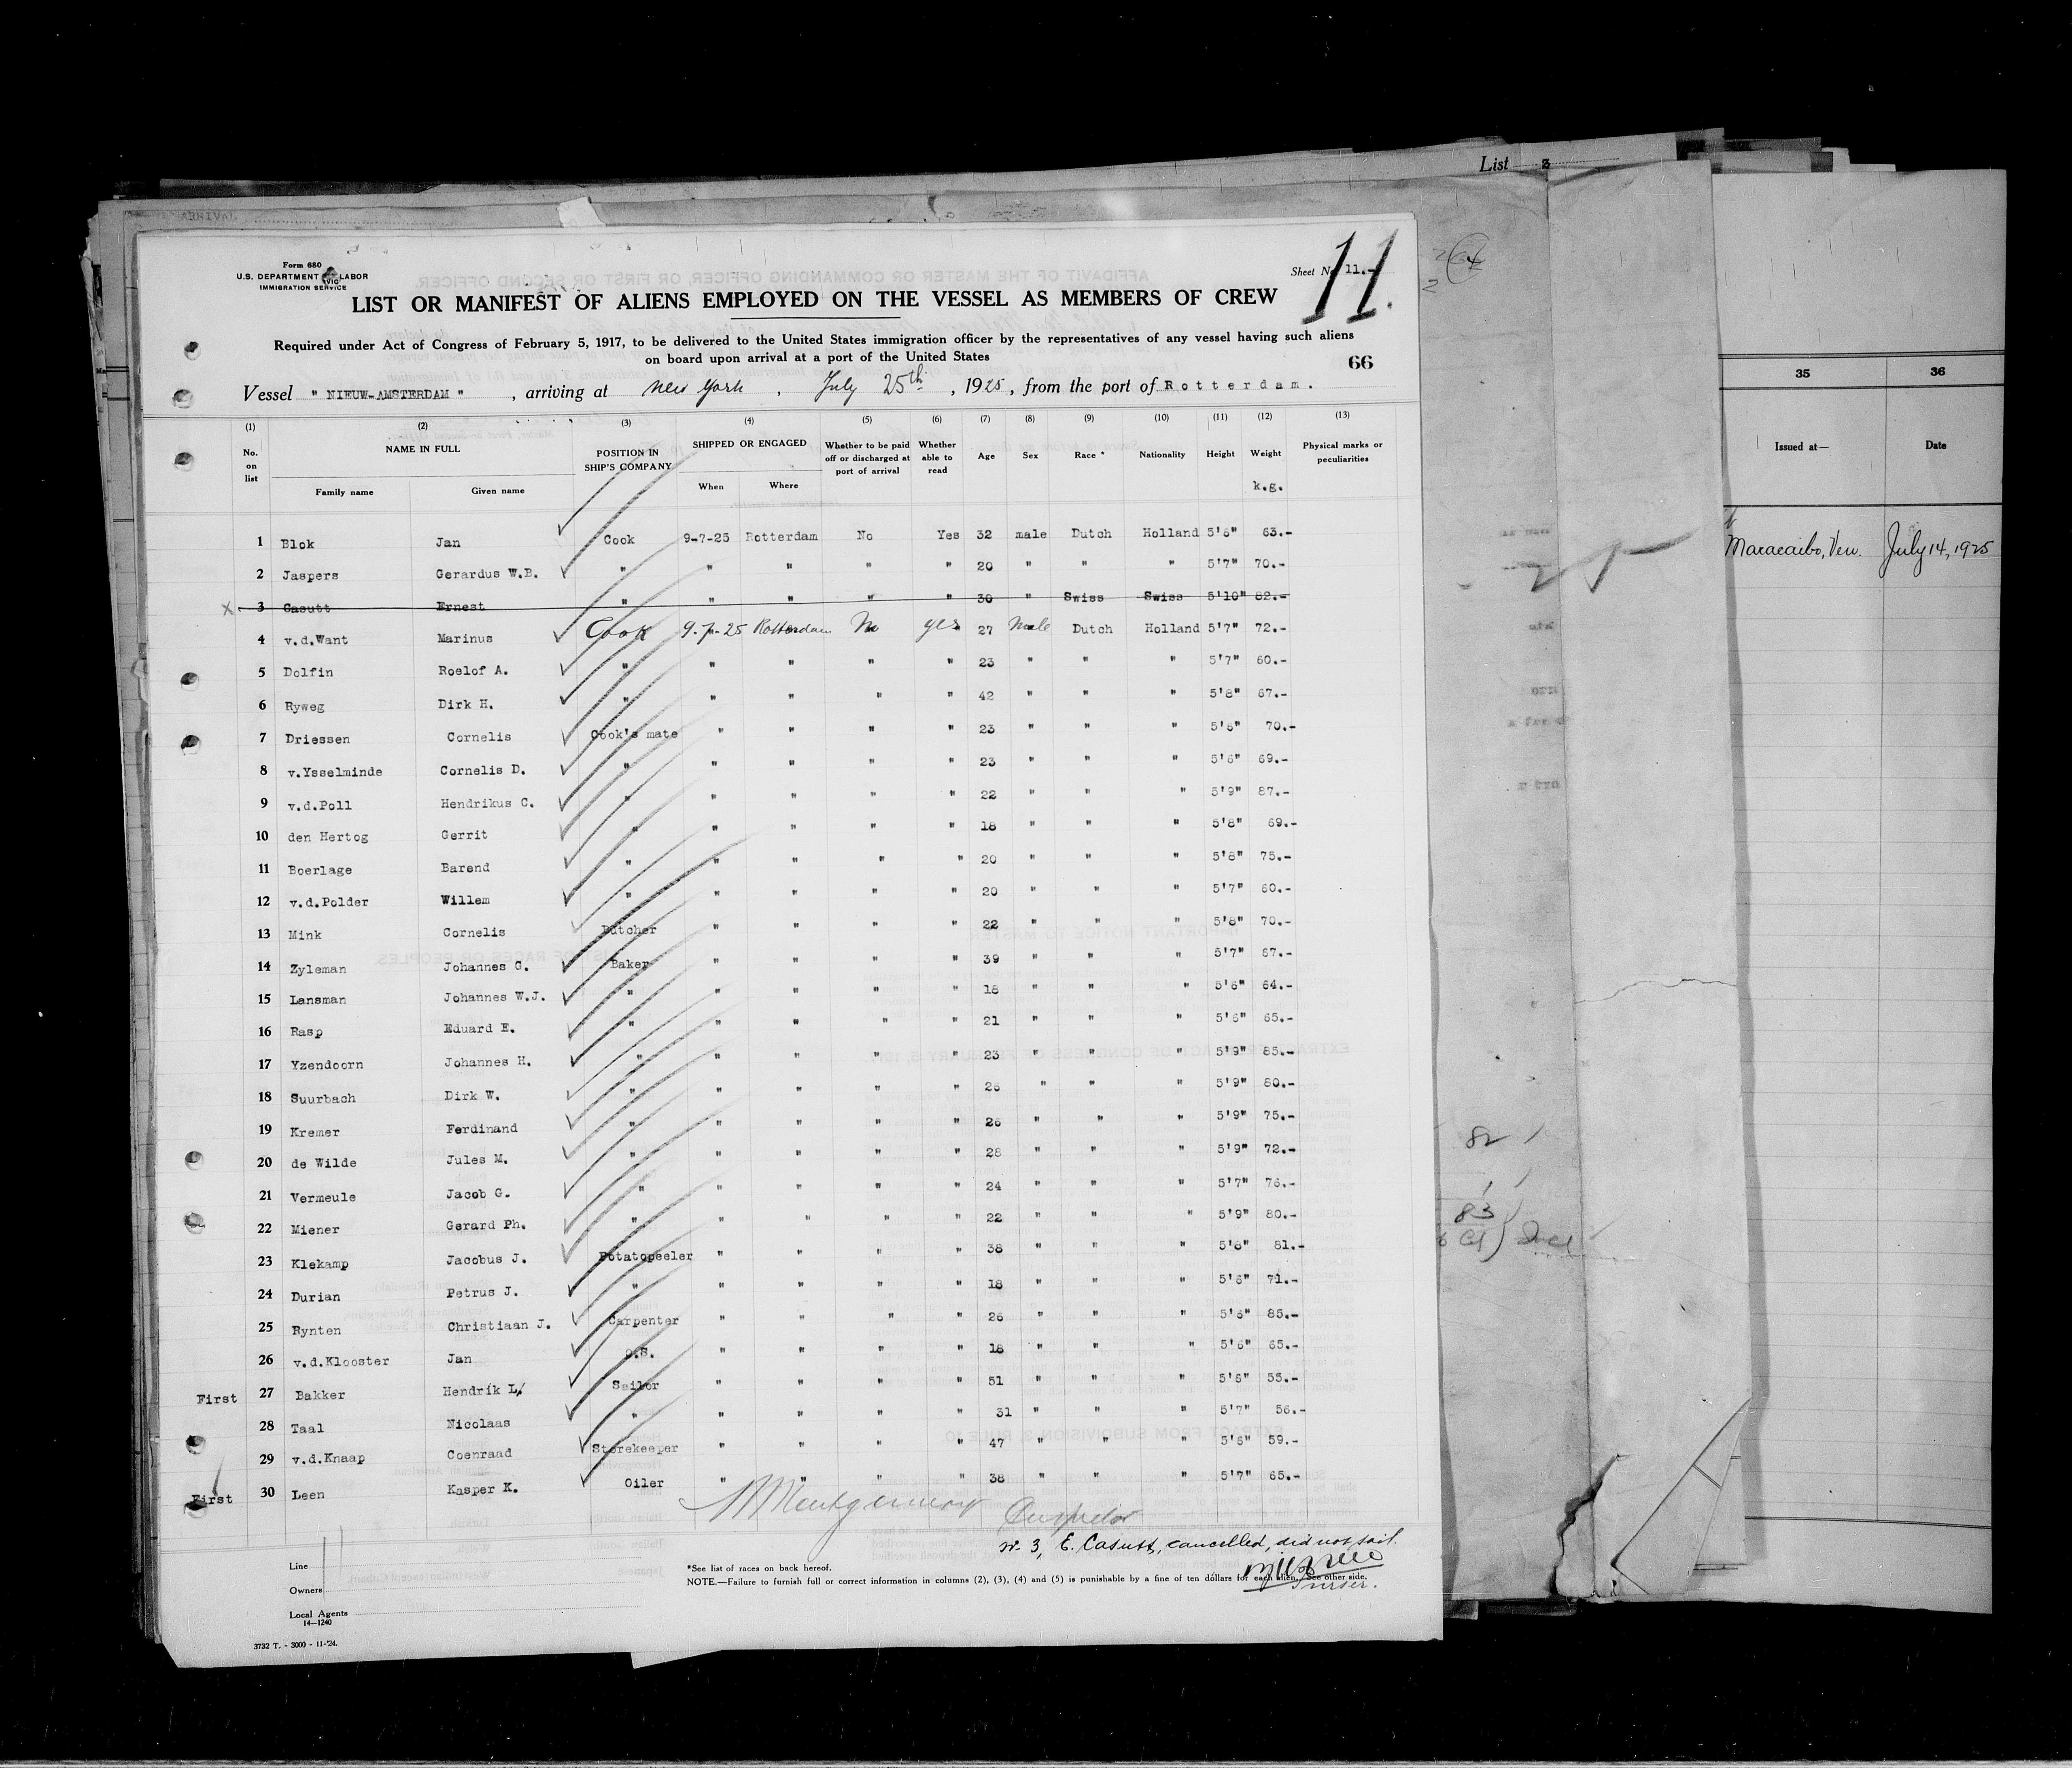 List 3
ARRIVAL
Form 680
U.S. DEPARTMENT LABOR
IMMIGRATION SERVICE
Sheet No. 11.-
11.
LIST OR MANIFEST OF ALIENS EMPLOYED ON THE VESSEL AS MEMBERS OF CREW
Required under Act of Congress of February 5, 1917, to be delivered to the United States immigration officer by the representatives of any vessel having such aliens
on board upon arrival at a port of the United States
66
Vessel " NIEUW-AMSTERDAM ", arriving at New York, July 25th, 1925, from the port of Rotterdam.
(1) (2) (3) (4) (5) (6) (7) (8) (9) (10) (11) (12) (13)
No. on list NAME IN FULL Family name Given name POSITION IN SHIP'S COMPANY SHIPPED OR ENGAGED When Where Whether to be paid off or discharged at port of arrival Whether able to read Age Sex Race * Nationality Height Weight k.g. Physical marks or peculiarities
1 Blok Jan Cook 9-7-25 Rotterdam No Yes 32 male Dutch Holland 5'6" 63.-
2 Jaspers Gerardus W.B. " " " " " 20 " " " 5'7" 70.-
x 3 Casutt Ernest " " " " " 30 " Swiss Swiss 5'10" 82.-
4 v.d.Want Marinus Cook 9-7-25 Rotterdam No yes 27 Male Dutch Holland 5'7" 72.-
5 Dolfin Roelof A. " " " " " 23 " " " 5'7" 60.-
6 Ryweg Dirk H. " " " " " 42 " " " 5'8" 67.-
7 Driessen Cornelis Cook's mate " " " " 23 " " " 5'6" 70.-
8 v.Ysselminde Cornelis D. " " " " " 23 " " " 5'6" 69.-
9 v.d.Poll Hendrikus C. " " " " " 22 " " " 5'9" 87.-
10 den Hertog Gerrit " " " " " 18 " " " 5'8" 69.-
11 Boerlage Barend " " " " " 20 " " " 5'8" 75.-
12 v.d.Polder Willem " " " " " 20 " " " 5'7" 60.-
13 Mink Cornelis Butcher " " " " 22 " " " 5'8" 70.-
14 Zyleman Johannes G. Baker " " " " 39 " " " 5'7" 67.-
15 Lansman Johannes W.J. " " " " " 18 " " " 5'6" 64.-
16 Rasp Eduard E. " " " " " 21 " " " 5'6" 65.-
17 Yzendoorn Johannes H. " " " " " 23 " " " 5'9" 85.-
18 Suurbach Dirk W. " " " " " 26 " " " 5'9" 80.-
19 Kremer Ferdinand " " " " " 26 " " " 5'9" 75.-
20 de Wilde Jules M. " " " " " 28 " " " 5'9" 72.-
21 Vermeule Jacob G. " " " " " 24 " " " 5'7" 76.-
22 Miener Gerard Ph. " " " " " 22 " " " 5'9" 80.-
23 Klekamp Jacobus J. Potatopeeler " " " " 38 " " " 5'8" 81.-
24 Durian Petrus J. " " " " " 18 " " " 5'6" 71.-
25 Rynten Christiaan J. Carpenter " " " " 26 " " " 5'6" 85.-
26 v.d.Klooster Jan O.S. " " " " 18 " " " 5'6" 65.-
First 27 Bakker Hendrik L/ Sailor " " " " 51 " " " 5'6" 55.-
28 Taal Nicolaas " " " " " 31 " " " 5'7" 56.-
29 v.d.Knaap Coenraad Storekeeper " " " " 47 " " " 5'6" 59.-
First 30 Leen Kasper K. Oiler " " " " 38 " " " 5'7" 65.-
Montgomery Inspector
nr. 3, E. Casutt, cancelled, did not sail.
Purser.
Line
Owners
Local Agents
14—1240
*See list of races on back hereof.
NOTE.—Failure to furnish full or correct information in columns (2), (3), (4) and (5) is punishable by a fine of ten dollars for each alien. See other side.
3732 T. - 3000 - 11-'24.
82
83
35 36
Issued at— Date
Maracaibo, Ven. July 14, 1925